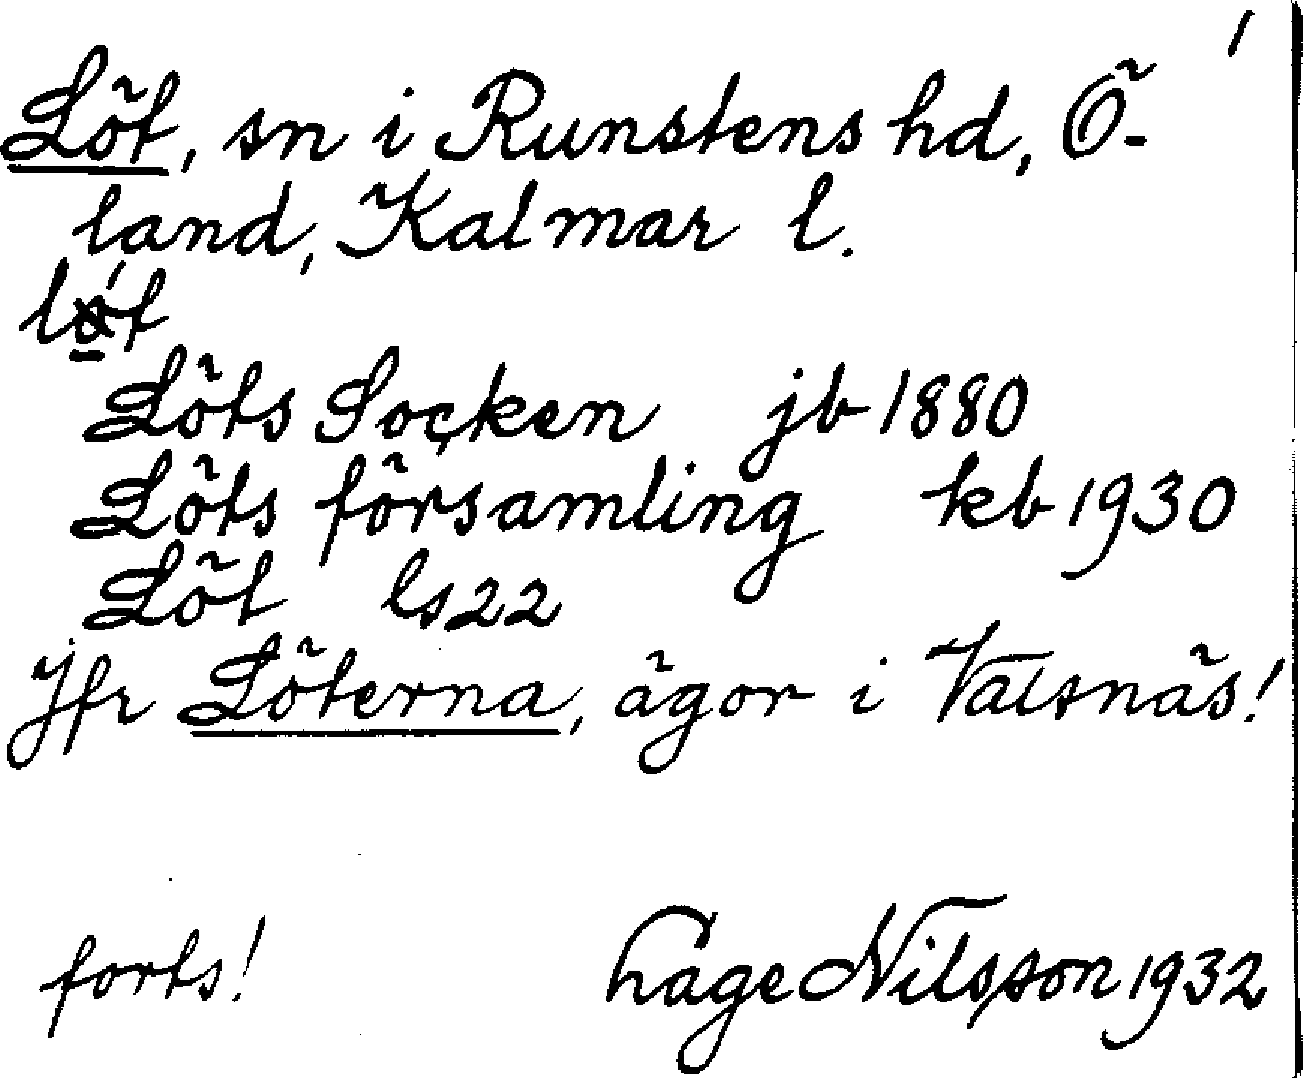 1
Löt, sn i Runstens hd, Ö-
land, Kalmar l.
Löts Socken jb 1880
Löts församling kb 1930
Löt ls 22
Jfr Löterna, ägor i Valsnäs!
forts! Hage Nilsson 1932